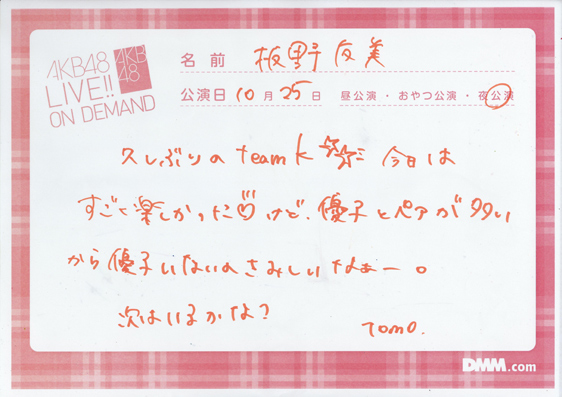 AKB48
LIVE!!
ON DEMAND
AKB
48
名前 板野友美
公演日 10月25日 昼公演・おやつ公演・夜公演
久しぶりの teamK☆☆ 今日は
すごく楽しかった♡けど、優子とペアが多い
から優子いないのさみしいなぁー。
次はいるかな?
Tomo.
DMM.com